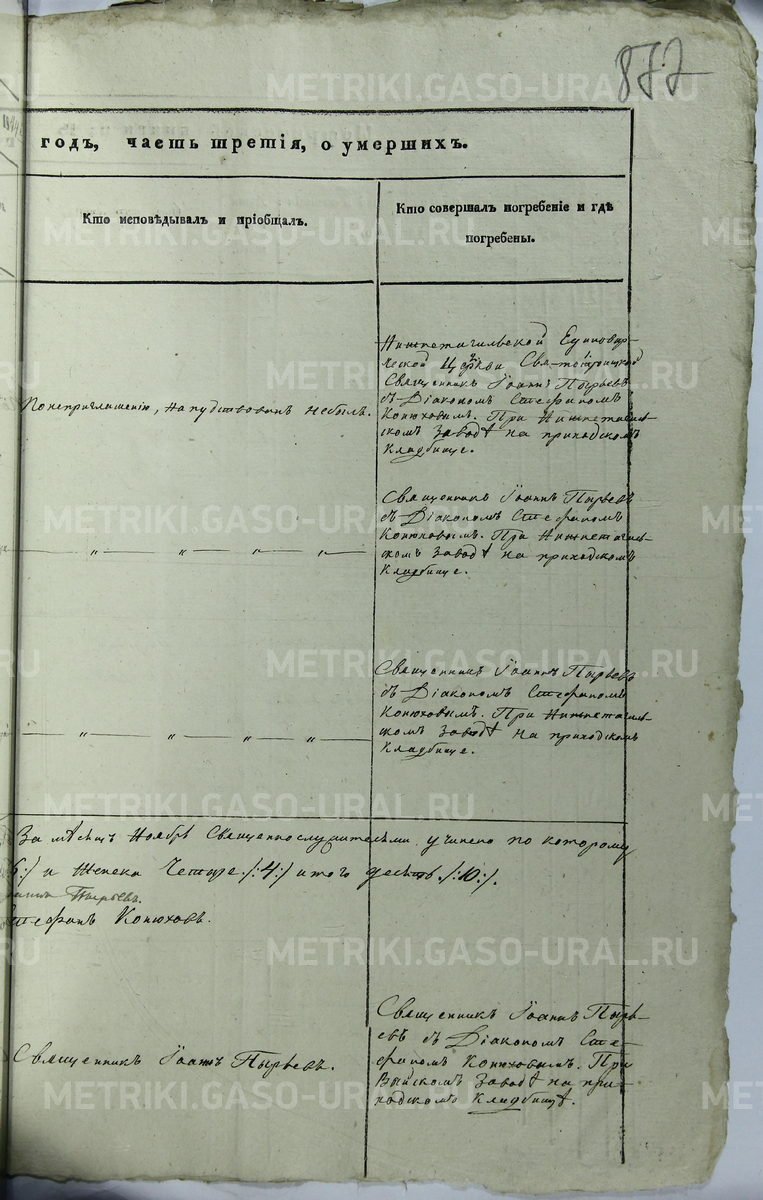 877
годъ, часть третія, о умершихъ.
Кто исповѣдывалъ и пріобщалъ.
Кто совершалъ погребеніе и гдѣ
погребены.
Нижнетагильской Единовѣр-
ческой Церкви Свято-Троицкой
Священникъ Іоаннъ Пырьевъ
съ Діакономъ Стефаномъ
Конюховымъ. При Нижнетагиль-
скомъ Заводѣ на приходскомъ
Кладбище.
По неприглашенію, напутствованъ небылъ.
Священникъ Іоаннъ Пырьевъ
съ Діакономъ Стефаномъ
Конюховымъ. При Нижнетагиль-
скомъ Заводѣ на приходскомъ
Кладбище.
— „ — „ — „ — „ —
Священникъ Іоаннъ Пырьевъ
съ Діакономъ Стефаномъ
Конюховымъ. При Нижнетагиль-
скомъ Заводѣ на приходскомъ
Кладбище.
— „ — „ — „ — „ —
За мѣсяцъ Ноябрь Священнослужителями учинено по которому
6:/ и женска Четыре /:4:/ итого десять /:10:/.
Пырьевъ.
Стефанъ Конюховъ.
Священникъ Іоаннъ Пырьевъ.
Священникъ Іоаннъ Пырь-
евъ съ Діакономъ Сте-
фаномъ Конюховымъ. При
Выйскомъ Заводѣ на при-
ходскомъ Кладбищѣ.
METRIKI.GASO-URAL.RU